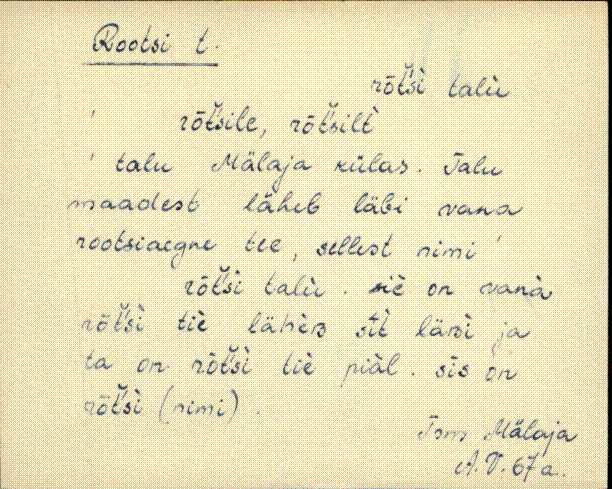 Rootsi t.
rõt̆si talù
rõt̆sile, rõt̆silt
' talu Mälaja külas. Talu
maadest läheb läbi vana
rootsiaegne tee, sellest nimi '
rõt̆si talù. siè on vanà
rõt̆si tiè läheʙ sīt läʙi ja
ta on rõt̆si tiè piäl. sis on
rõt̆si (nimi).
Mälaja
A.V. 67 a.